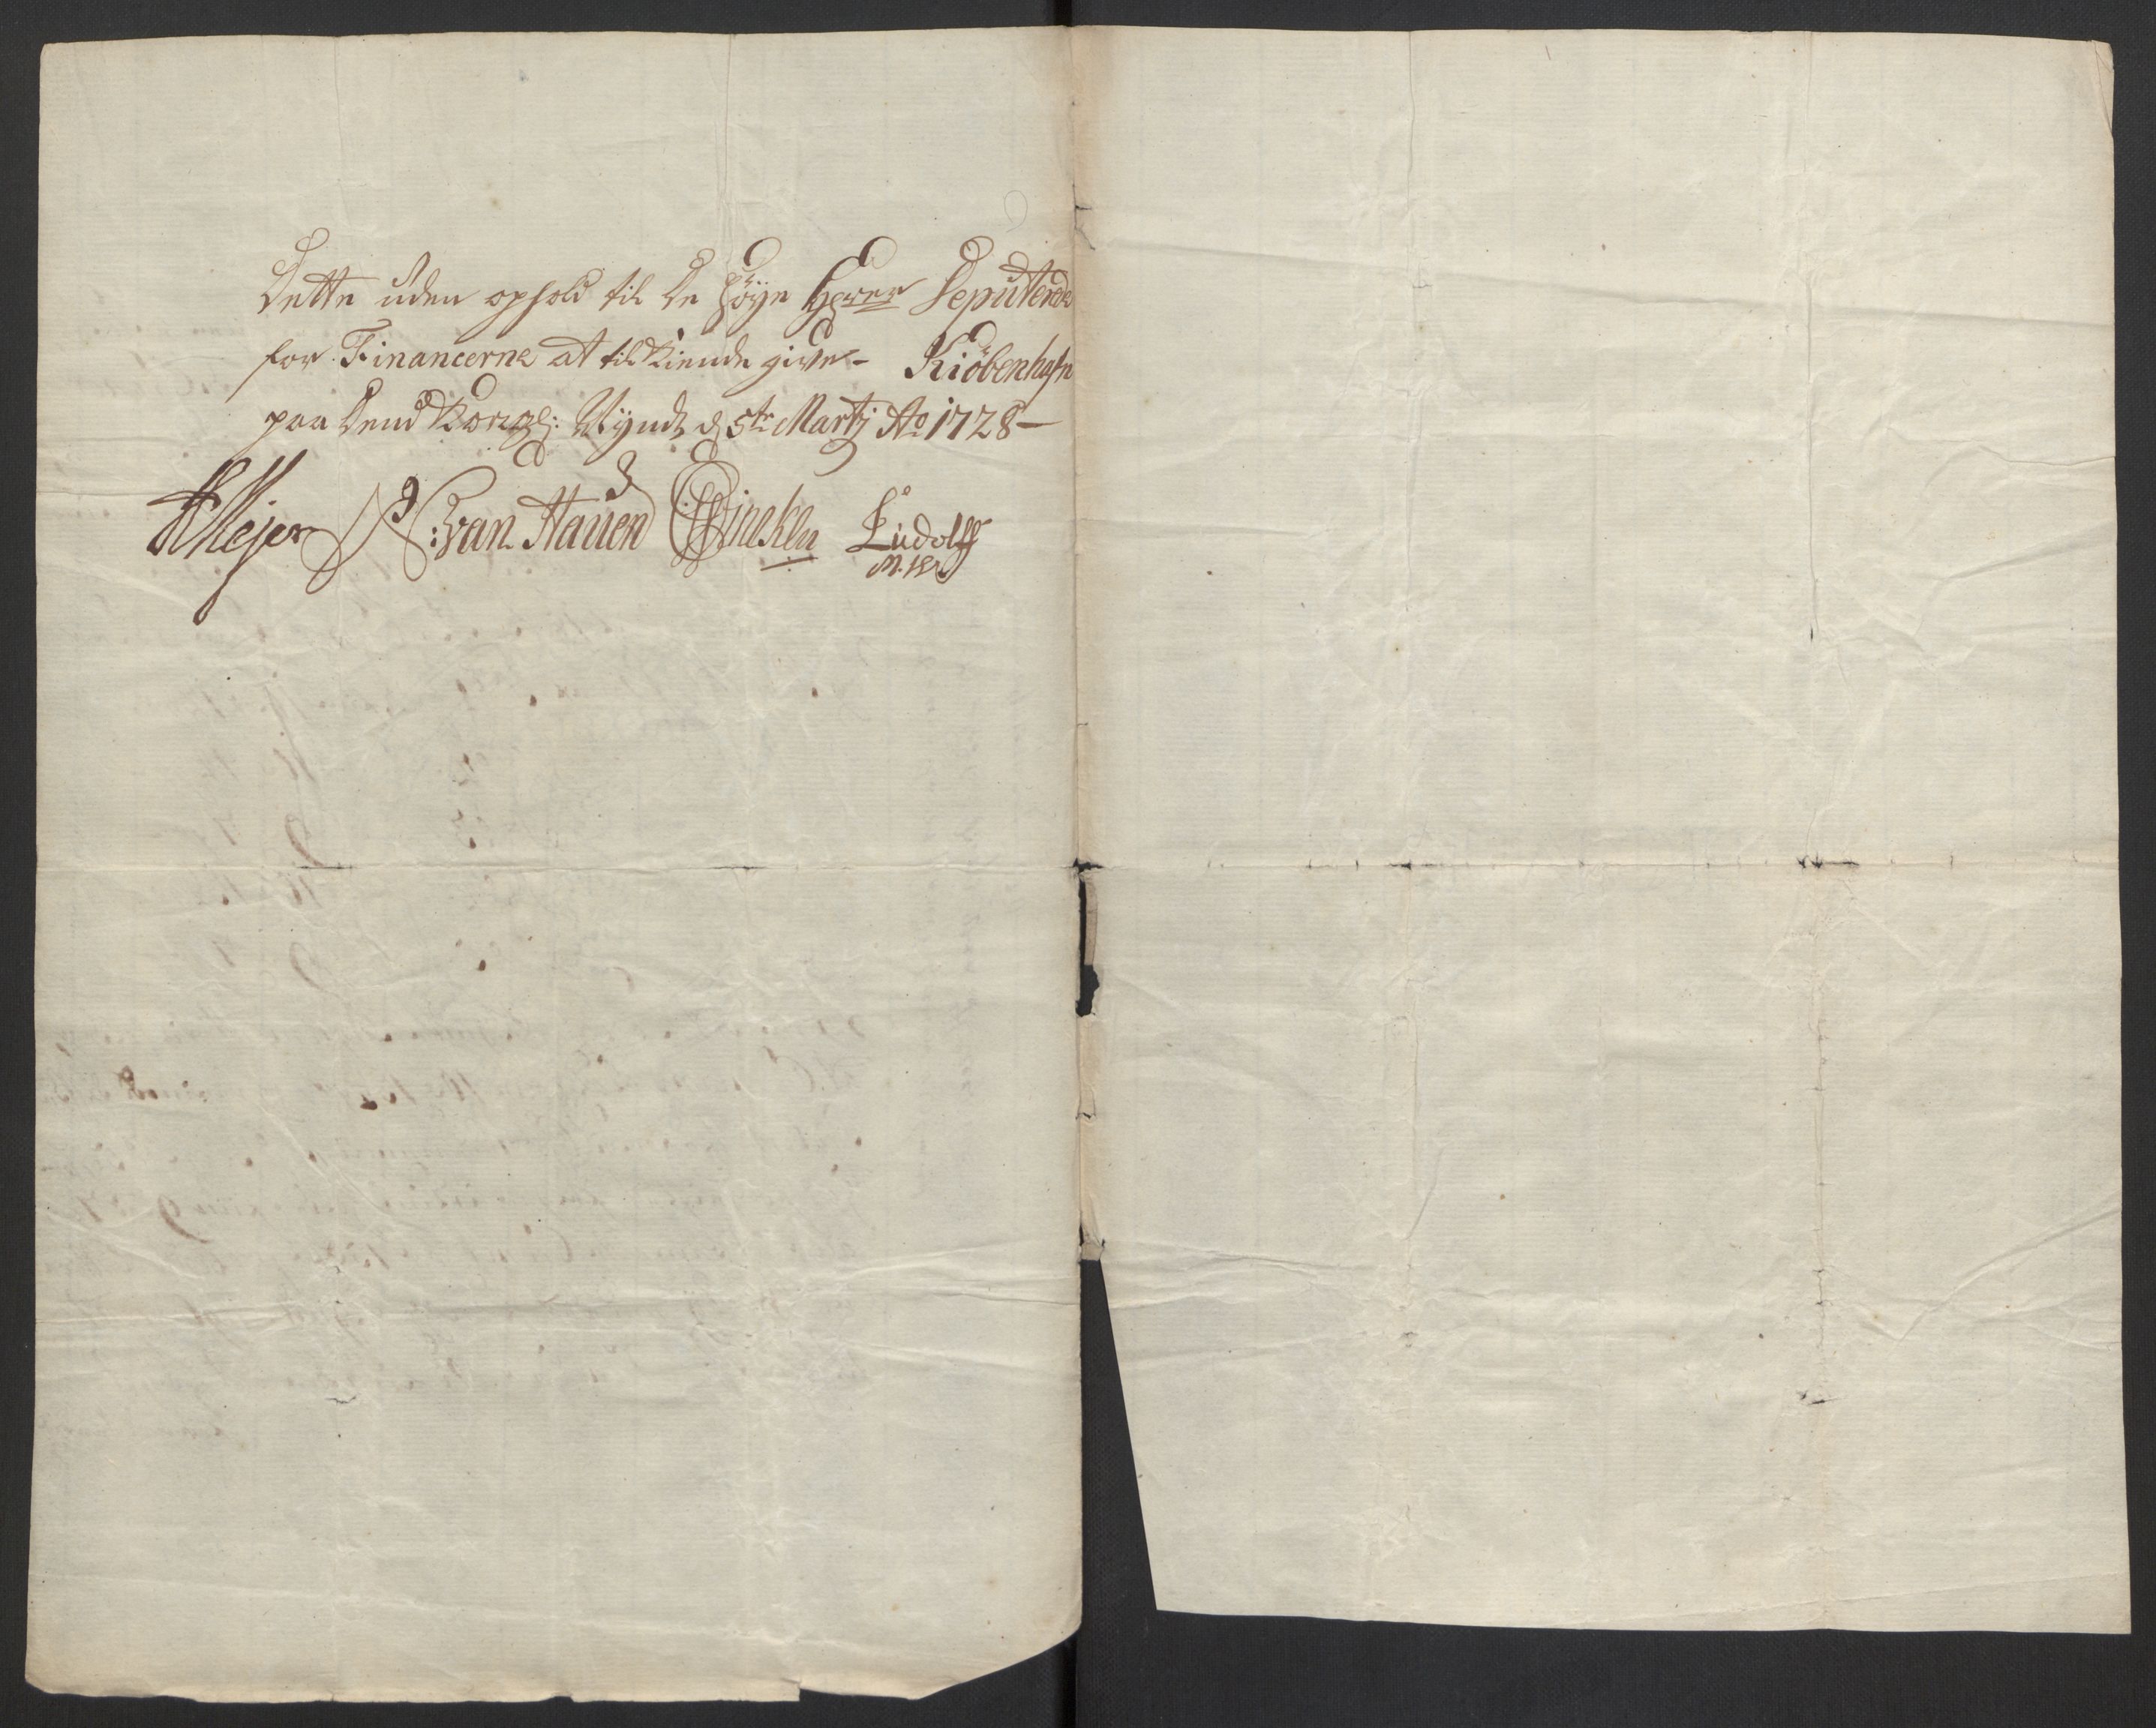 Dette uden ophold til de Höye Herrer Deputerde
for Financerne at tilkiende give – Kiöbenhafn
paa dend Kongl: Mÿndt d 5te Martj Ao 1728 –
Mejer P: van Hauen Wineken Ludolff